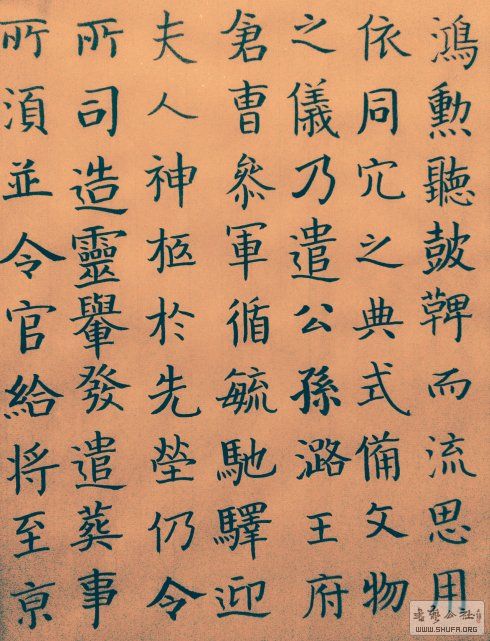 鴻勳聽皷鞞而流思用
依同穴之典式備文物
之儀乃遣公孫潞王府
倉曹叅軍循毓馳驛迎
夫人神柩於先塋仍令
所司造靈轝發遣葬事
所湏並令官給将至京
書藝公社
WWW.SHUFA.ORG